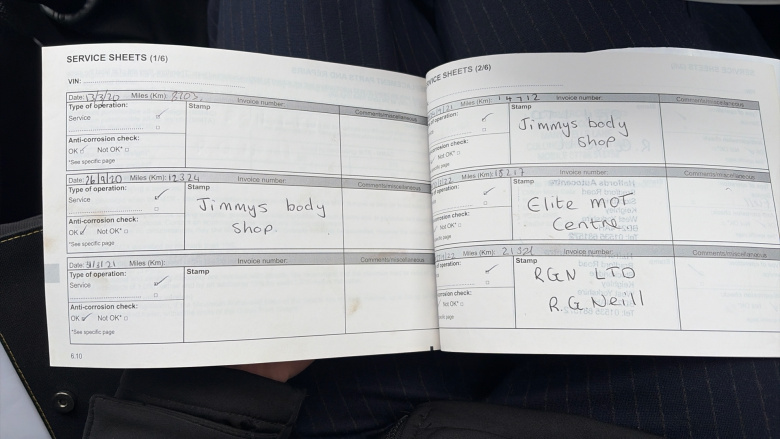 SERVICE SHEETS (1/6)
VIN:
Date: 13/3/20 Miles (Km): Invoice number:
Type of operation: Stamp Comments/miscellaneous
Service ✓
Anti-corrosion check:
OK ✓ Not OK* □
*See specific page
Date: 26/9/20 Miles (Km): 12324 Invoice number:
Type of operation: Stamp Comments/miscellaneous
Service ✓
Jimmys body
Shop.
Anti-corrosion check:
OK ✓ Not OK* □
*See specific page
Date: Miles (Km): Invoice number:
Type of operation: Stamp Comments/miscellaneous
Service ✓
Anti-corrosion check:
OK ✓ Not OK* □
*See specific page
6.10
SERVICE SHEETS (2/6)
Miles (Km): 14712 Invoice number:
operation: Stamp Comments/miscellaneous
Jimmys body
Shop
corrosion check:
Not OK* □
specific page
Miles (Km): Invoice number:
of operation: Stamp Comments/miscellaneous
Elite MOT
Centre
corrosion check:
Not OK* □
specific page
Miles (Km): Invoice number:
of operation: Stamp Comments/miscellaneous
RGN LTD
R.G Neill
corrosion check:
Not OK* □
specific page